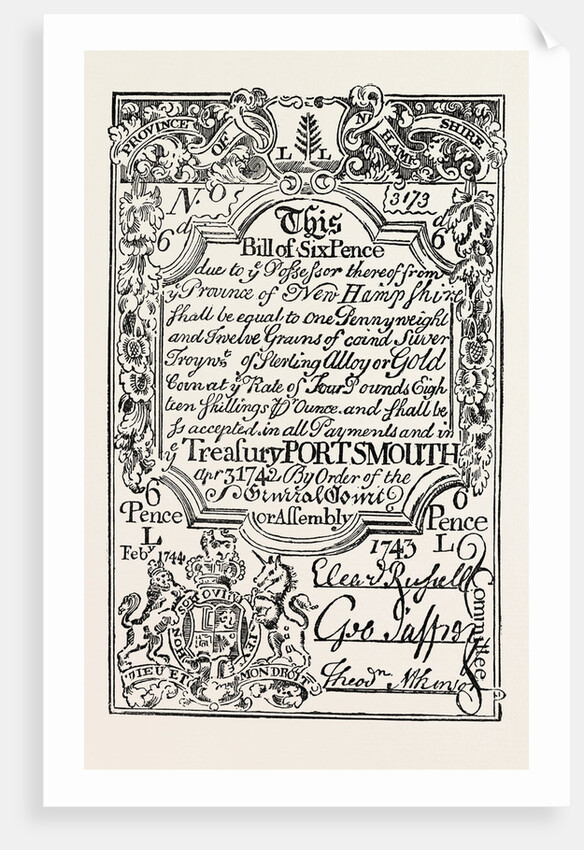 PROVINCE OF N HAMP SHIRE
L L
No 3173
6d 6d
This
Bill of Six Pence
due to ye Possessor thereof from
ye Province of New Hampshire
Shall be equal to one Pennyweight
and Twelve Grains of coind Silver
Troy wt of Sterling Alloy or Gold
Coin at ye Rate of Four Pounds Eigh
teen Shillings Ounce and shall be
So accepted in all Payments and in
ye Treasury PORTSMOUTH
Apr 3 1742 By Order of the
General Court
or Assembly
6 Pence L
6 Pence L
Feby 1744
1743
HONI SOIT QUI
DIEU ET MON DROIT
Eleazr Russell
Geo Jaffrey
Theodr Atkinson
Committee